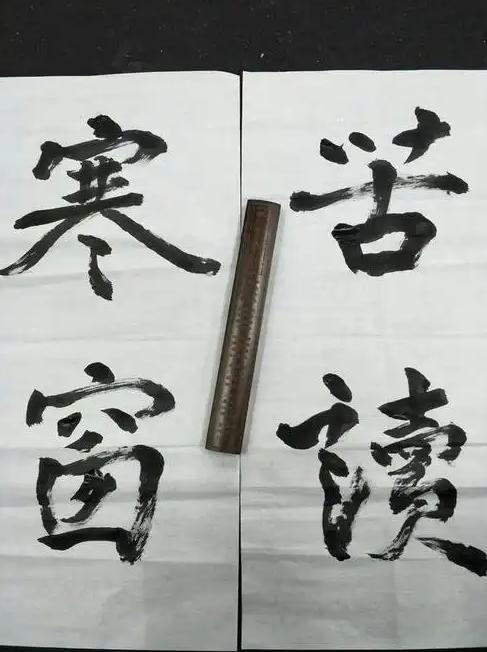 苦讀
寒窗